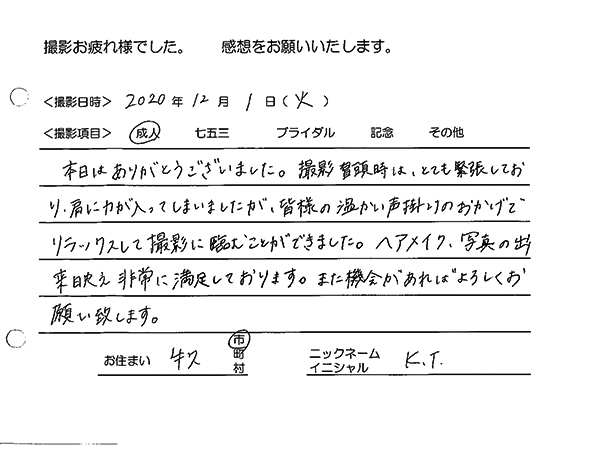 撮影お疲れ様でした。　感想をお願いいたします。
<撮影日時> 2020 年 12 月 1 日(火)
<撮影項目> 成人 七五三 ブライダル 記念 その他
本日はありがとうございました。撮影冒頭時は、とても緊張してお
り、肩に力が入ってしまいましたが、皆様の温かい声掛けのおかげで
リラックスして撮影に臨むことができました。ヘアメイク、写真の出
来映え非常に満足しております。また機会があればよろしくお
願い致します。
お住まい 市町村
ニックネーム イニシャル K.T.